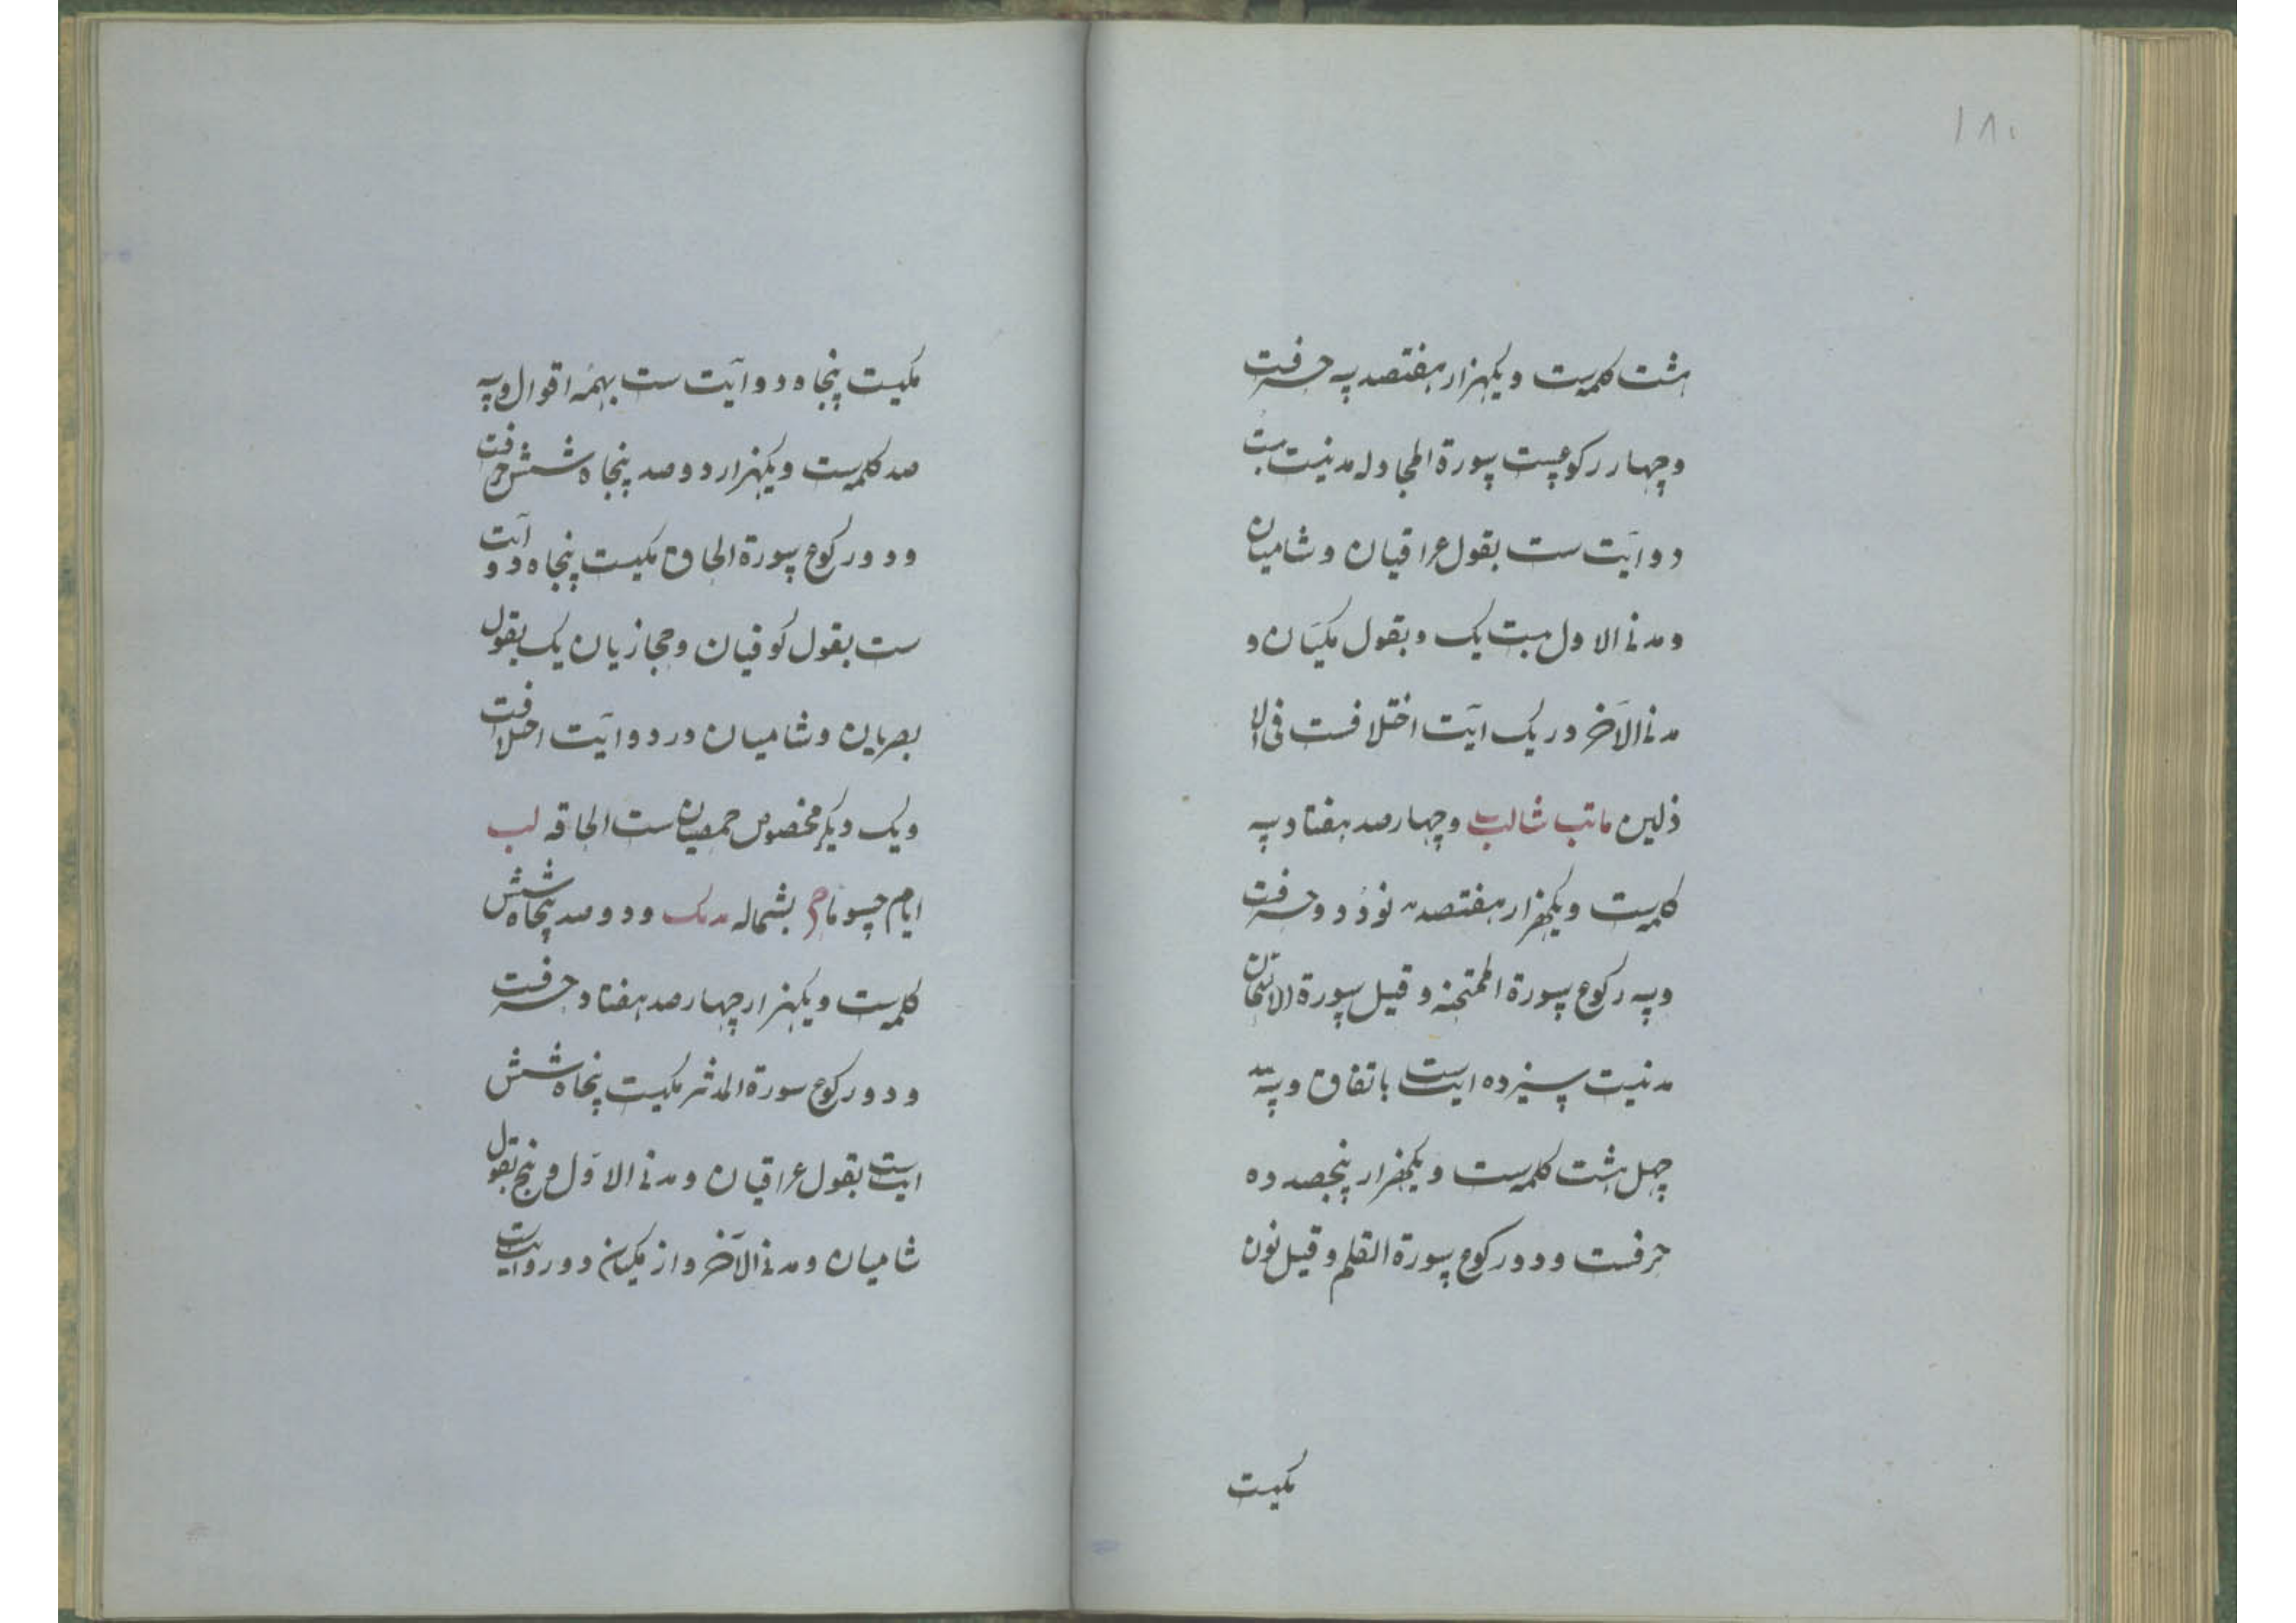 ۱۸۰
هشت کلمه‌ست و یکهزار هفتصد سه حرفست
و چهار رکوعست سورة المجادله مدنیست بیست
دو آیت ست بقول عراقیان و شامیان
و مدنی الاول بیست یک و بقول مکیان و
مدنی الآخر در یک آیت اختلافست فی الا
ذلین و چهارصد هفتاد سه
کلمه‌ست و یکهزار هفتصد نود دو حرفست
و سه رکوع سورة الممتحنه و قیل سورة الامتحان
مدنیست سیزده آیت ست باتفاق و سه صد
چهل هشت کلمه‌ست و یکهزار پنجصد ده
حرفست و دو رکوع سورة القلم و قیل نون
مکیست
مکیست پنجاه دو آیت ست بهمه اقوال و سه
صد کلمه‌ست و یکهزار دو صد پنجاه شش حرفست
و دو رکوع سورة الحاقه مکیست پنجاه دو آیت
ست بقول کوفیان و حجازیان یک بقول
بصریان و شامیان در دو آیت اختلافست
و یک دیگر مخصوص حمصیان ست الحاقه لب
ایام حسوما بشماله و دو صد پنجاه شش
کلمه‌ست و یکهزار چهارصد هفتاد حرفست
و دو رکوع سورة المدثر مکیست پنجاه شش
آیت ست بقول عراقیان و مدنی الاول و پنج بقول
شامیان و مدنی الآخر و از مکیان دو روایت ست